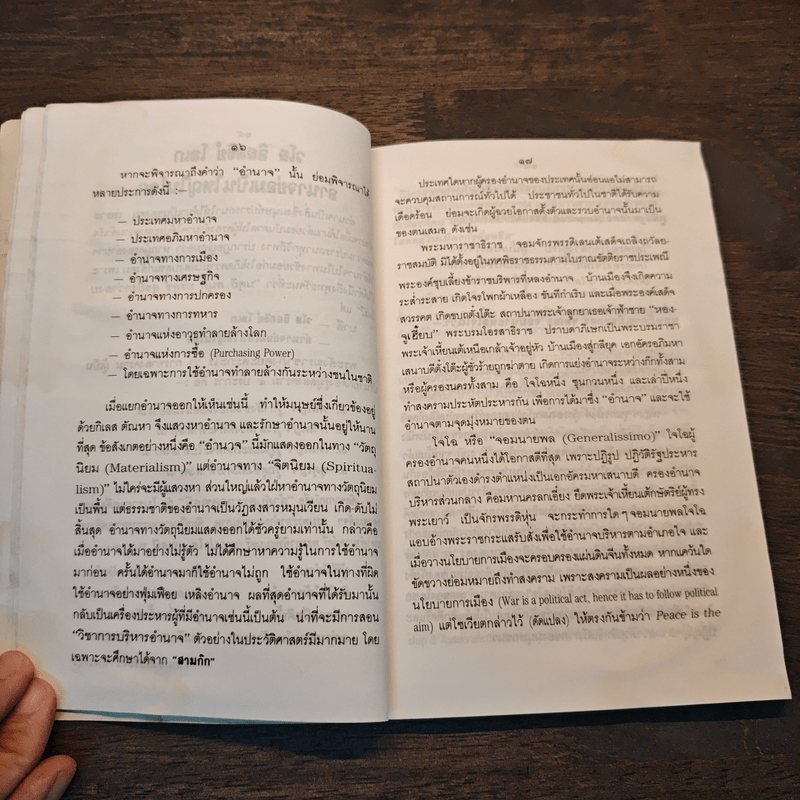 ๑๖
หากจะพิจารณาถึงคำว่า “อำนาจ” นั้น ย่อมพิจารณาได้
หลายประการดังนี้ :—
— ประเทศมหาอำนาจ
— ประเทศอภิมหาอำนาจ
— อำนาจทางการเมือง
— อำนาจทางเศรษฐกิจ
— อำนาจทางการปกครอง
— อำนาจทางการทหาร
— อำนาจแห่งอาวุธทำลายล้างโลก
— อำนาจแห่งการซื้อ (Purchasing Power)
— โดยเฉพาะการใช้อำนาจทำลายล้างกันระหว่างชนในชาติ
เมื่อแยกอำนาจออกให้เห็นเช่นนี้ ทำให้มนุษย์ซึ่งเกี่ยวข้องอยู่
ด้วยกิเลส ตัณหา จึงแสวงหาอำนาจ และรักษาอำนาจนั้นอยู่ให้นาน
ที่สุด ข้อสังเกตอย่างหนึ่งคือ “อำนวจ” นี้มักแสดงออกในทาง “วัตถุ
นิยม (Materialism)” แต่อำนาจทาง “จิตนิยม (Spiritua-
lism)” ไม่ใคร่จะมีผู้แสวงหา ส่วนใหญ่แล้วใฝ่หาอำนาจทางวัตถุนิยม
เป็นพื้น แต่ธรรมชาติของอำนาจเป็นวัฏสงสารหมุนเวียน เกิด-ดับไม่
สิ้นสุด อำนาจทางวัตถุนิยมแสดงออกได้ชั่วครู่ยามเท่านั้น กล่าวคือ
เมื่ออำนาจได้มาอย่างไม่รู้ตัว ไม่ได้ศึกษาหาความรู้ในการใช้อำนาจ
มาก่อน ครั้นได้อำนาจมาก็ใช้อำนาจไม่ถูก ใช้อำนาจในทางที่ผิด
ใช้อำนาจอย่างฟุ่มเฟือย เหลิงอำนาจ ผลที่สุดอำนาจที่ได้รับมานั้น
กลับเป็นเครื่องประหารผู้ที่มีอำนาจเช่นนี้เป็นต้น น่าที่จะมีการสอน
“วิชาการบริหารอำนาจ” ตัวอย่างในประวัติศาสตร์มีมากมาย โดย
เฉพาะจะศึกษาได้จาก “สามก๊ก”
๑๗
ประเทศใดหากผู้ครองอำนาจของประเทศนั้นอ่อนแอไม่สามารถ
จะควบคุมสถานการณ์ทั่วไปได้ ประชาชนทั่วไปในชาติได้รับความ
เดือดร้อน ย่อมจะเกิดผู้ฉวยโอกาสตั้งตัวและรวบอำนาจนั้นมาเป็น
ของตนเสมอ ดังเช่น
พระมหาราชาธิราช จอมจักรพรรดิเลนเต้เสด็จเถลิงถวัลย-
ราชสมบัติ มิได้ตั้งอยู่ในทศพิธราชธรรมตามโบราณขัตติยราชประเพณี
พระองค์ชุบเลี้ยงข้าราชบริพารที่หลงอำนาจ บ้านเมืองจึงเกิดความ
ระส่ำระสาย เกิดโจรโพกผ้าเหลือง ขันทีกำเริบ และเมื่อพระองค์เสด็จ
สวรรคต เกิดขบถตั๋งโต๊ะ สถาปนาพระเจ้าลูกยาเธอเจ้าฟ้าชาย “หอง-
จูเฮียบ” พระบรมโอรสาธิราช ปราบดาภิเษกเป็นพระบรมราชา
พระเจ้าเหี้ยนเต้เหนือเกล้าเจ้าอยู่หัว บ้านเมืองสู่กลียุค เอกอัครอภิมหา
เสนาบดีตั๋งโต๊ะผู้ชั่วร้ายถูกฆ่าตาย เกิดการแย่งอำนาจระหว่างก๊กทั้งสาม
หรือผู้ครองนครทั้งสาม คือ โจโฉหนึ่ง ซุนกวนหนึ่ง และเล่าปี่หนึ่ง
ทำสงครามประหัตประหารกัน เพื่อการได้มาซึ่ง “อำนาจ” และจะใช้
อำนาจตามจุดมุ่งหมายของตน
โจโฉ หรือ “จอมนายพล (Generalissimo)” โจโฉผู้
ครองอำนาจคนหนึ่งได้โอกาสดีที่สุด เพราะปฏิรูป ปฏิวัติรัฐประหาร
สถาปนาตัวเองดำรงตำแหน่งเป็นเอกอัครมหาเสนาบดี ครองอำนาจ
บริหารส่วนกลาง คือมหานครลกเอี๋ยง ยึดพระเจ้าเหี้ยนเต้กษัตริย์ผู้ทรง
พระเยาว์ เป็นจักรพรรดิหุ่น จะกระทำการใด ๆ จอมนายพลโจโฉ
แอบอ้างพระราชกระแสรับสั่งเพื่อใช้อำนาจบริหารตามอำเภอใจ และ
เมื่อวางนโยบายการเมืองจะครอบครองแผ่นดินจีนทั้งหมด หากแคว้นใด
ขัดขวางย่อมหมายถึงทำสงคราม เพราะสงครามเป็นผลอย่างหนึ่งของ
นโยบายการเมือง (War is a political act, hence it has to follow political
aim) แต่โซเวียตกล่าวไว้ (ดัดแปลง) ให้ตรงกันข้ามว่า Peace is the